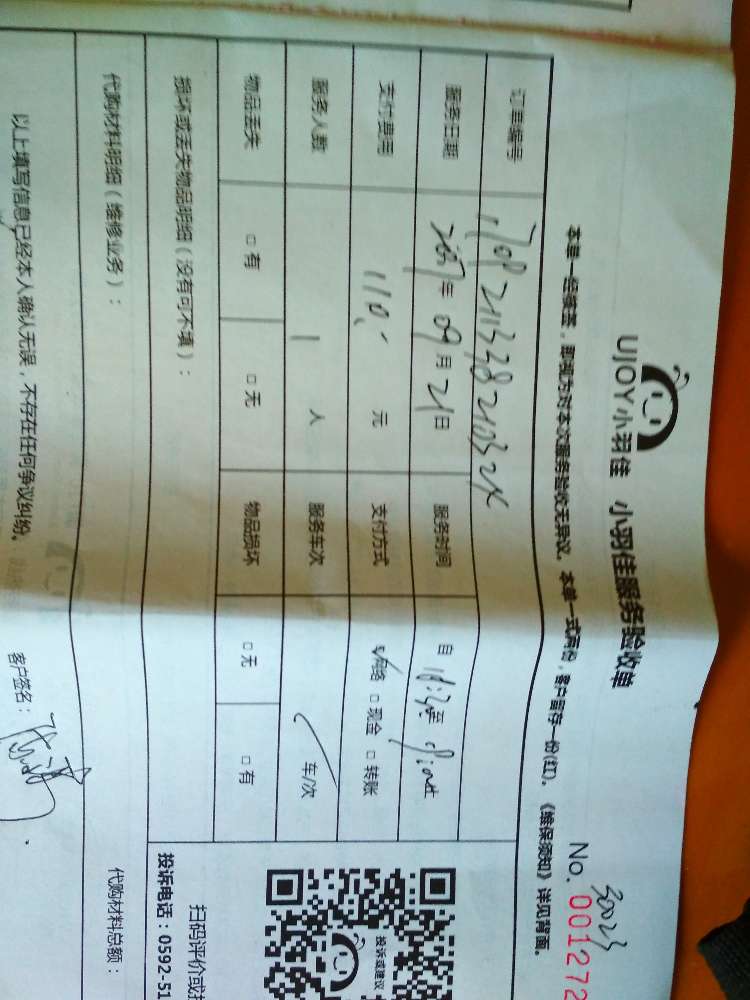 UJOY小羽佳 小羽佳服务验收单
No. 001272
本单一经签签，即视为对本次服务验收无异议。本单一式两份，客户留存一份(红)。《维保须知》详见背面。
订单编号
服务日期 2017年 09月 21日 服务时间 自 至
支付费用 110. 元 支付方式 ☑网络 □现金 □转账
服务人数 1 人 服务车次 车/次
物品丢失 □有 □无 物品损坏 □无 □有
损坏或丢失物品明细（没有可不填）：
代购材料明细（维修业务）：
代购材料总额：
以上填写信息已经本人确认无误，不存在任何争议纠纷。
客户签名：
投诉或建议
扫码评价或投
投诉电话：0592-51